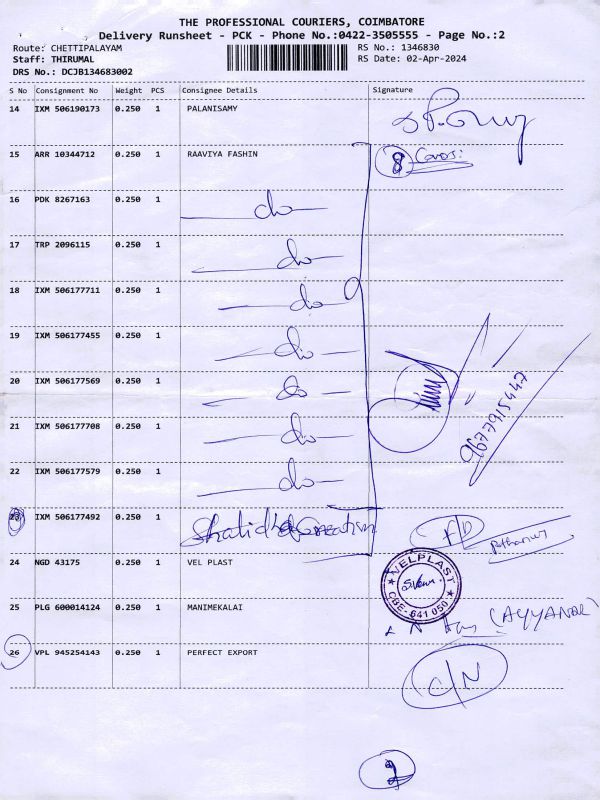 THE PROFESSIONAL COURIERS, COIMBATORE
Delivery Runsheet - PCK - Phone No.:0422-3505555 - Page No.:2
Route: CHETTIPALAYAM RS No.: 1346830
Staff: THIRUMAL RS Date: 02-Apr-2024
DRS No.: DCJB134683002
S No Consignment No Weight PCS Consignee Details Signature
14 IXM 506190173 0.250 1 PALANISAMY
15 ARR 10344712 0.250 1 RAAVIYA FASHIN 8
16 PDK 8267163 0.250 1 do
17 TRP 2096115 0.250 1 do
18 IXM 506177711 0.250 1 do
19 IXM 506177455 0.250 1 do
20 IXM 506177569 0.250 1 do
9677915447
21 IXM 506177708 0.250 1 do
22 IXM 506177579 0.250 1 do
23 IXM 506177492 0.250 1
24 NGD 43175 0.250 1 VEL PLAST VELPLAST CBE-641 050
25 PLG 600014124 0.250 1 MANIMEKALAI (AYYANAR)
26 VPL 945254143 0.250 1 PERFECT EXPORT C/N
2